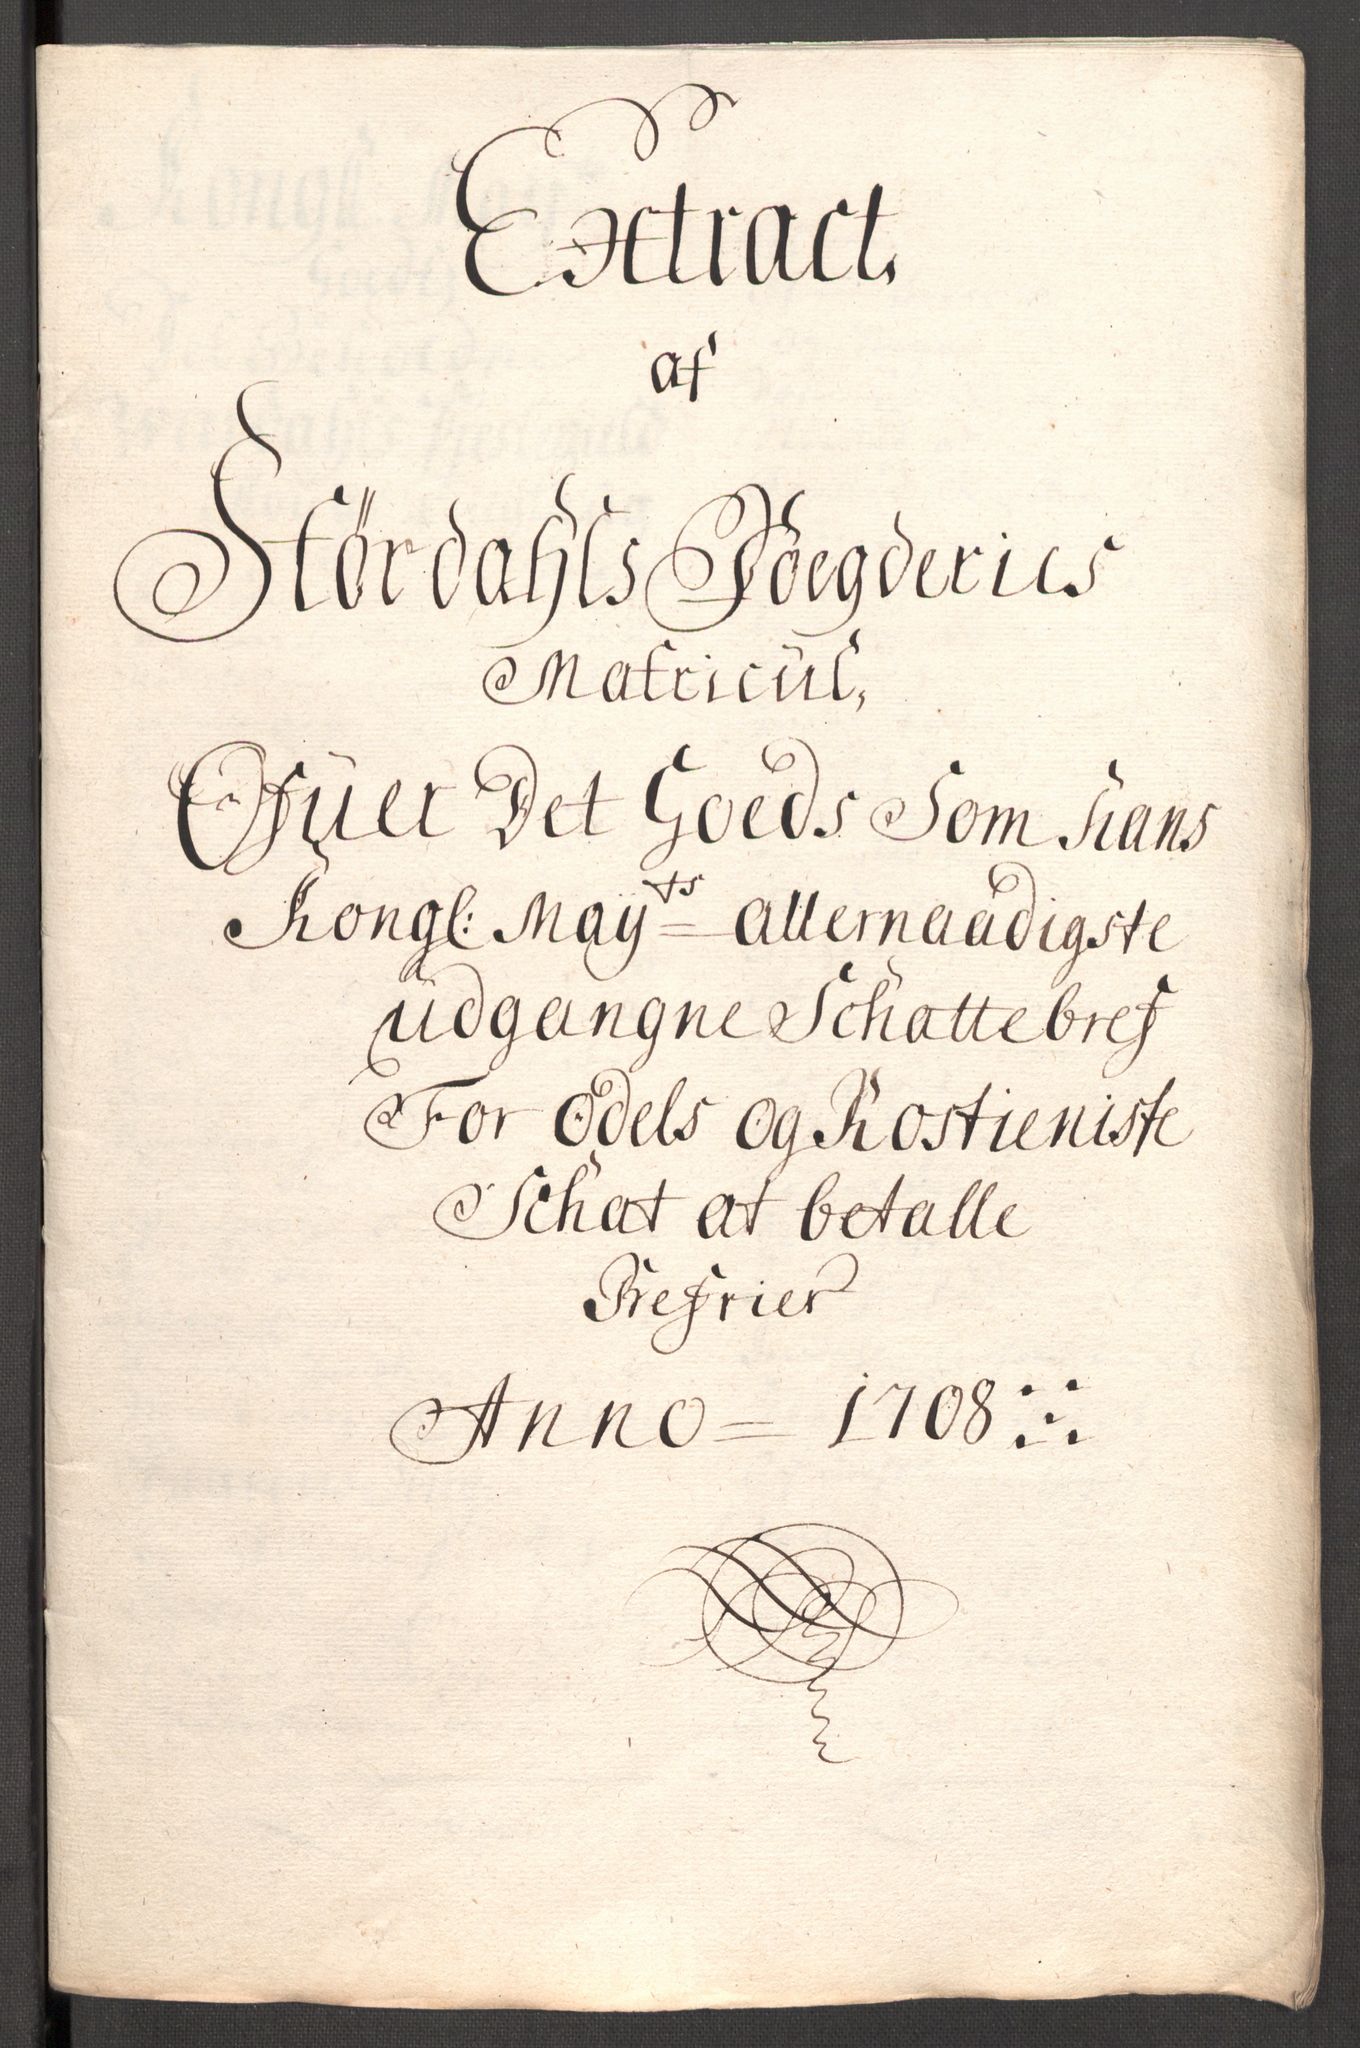 Extract,
af
Størdahls Foegderies
Matricül,
Ofüer Det Goeds Som hans
Kongl: Mayts allernaadigste
üdgangne Schattebref
For Odels og Rostieniste
Schat at betalle
Befrier
Anno = 1708